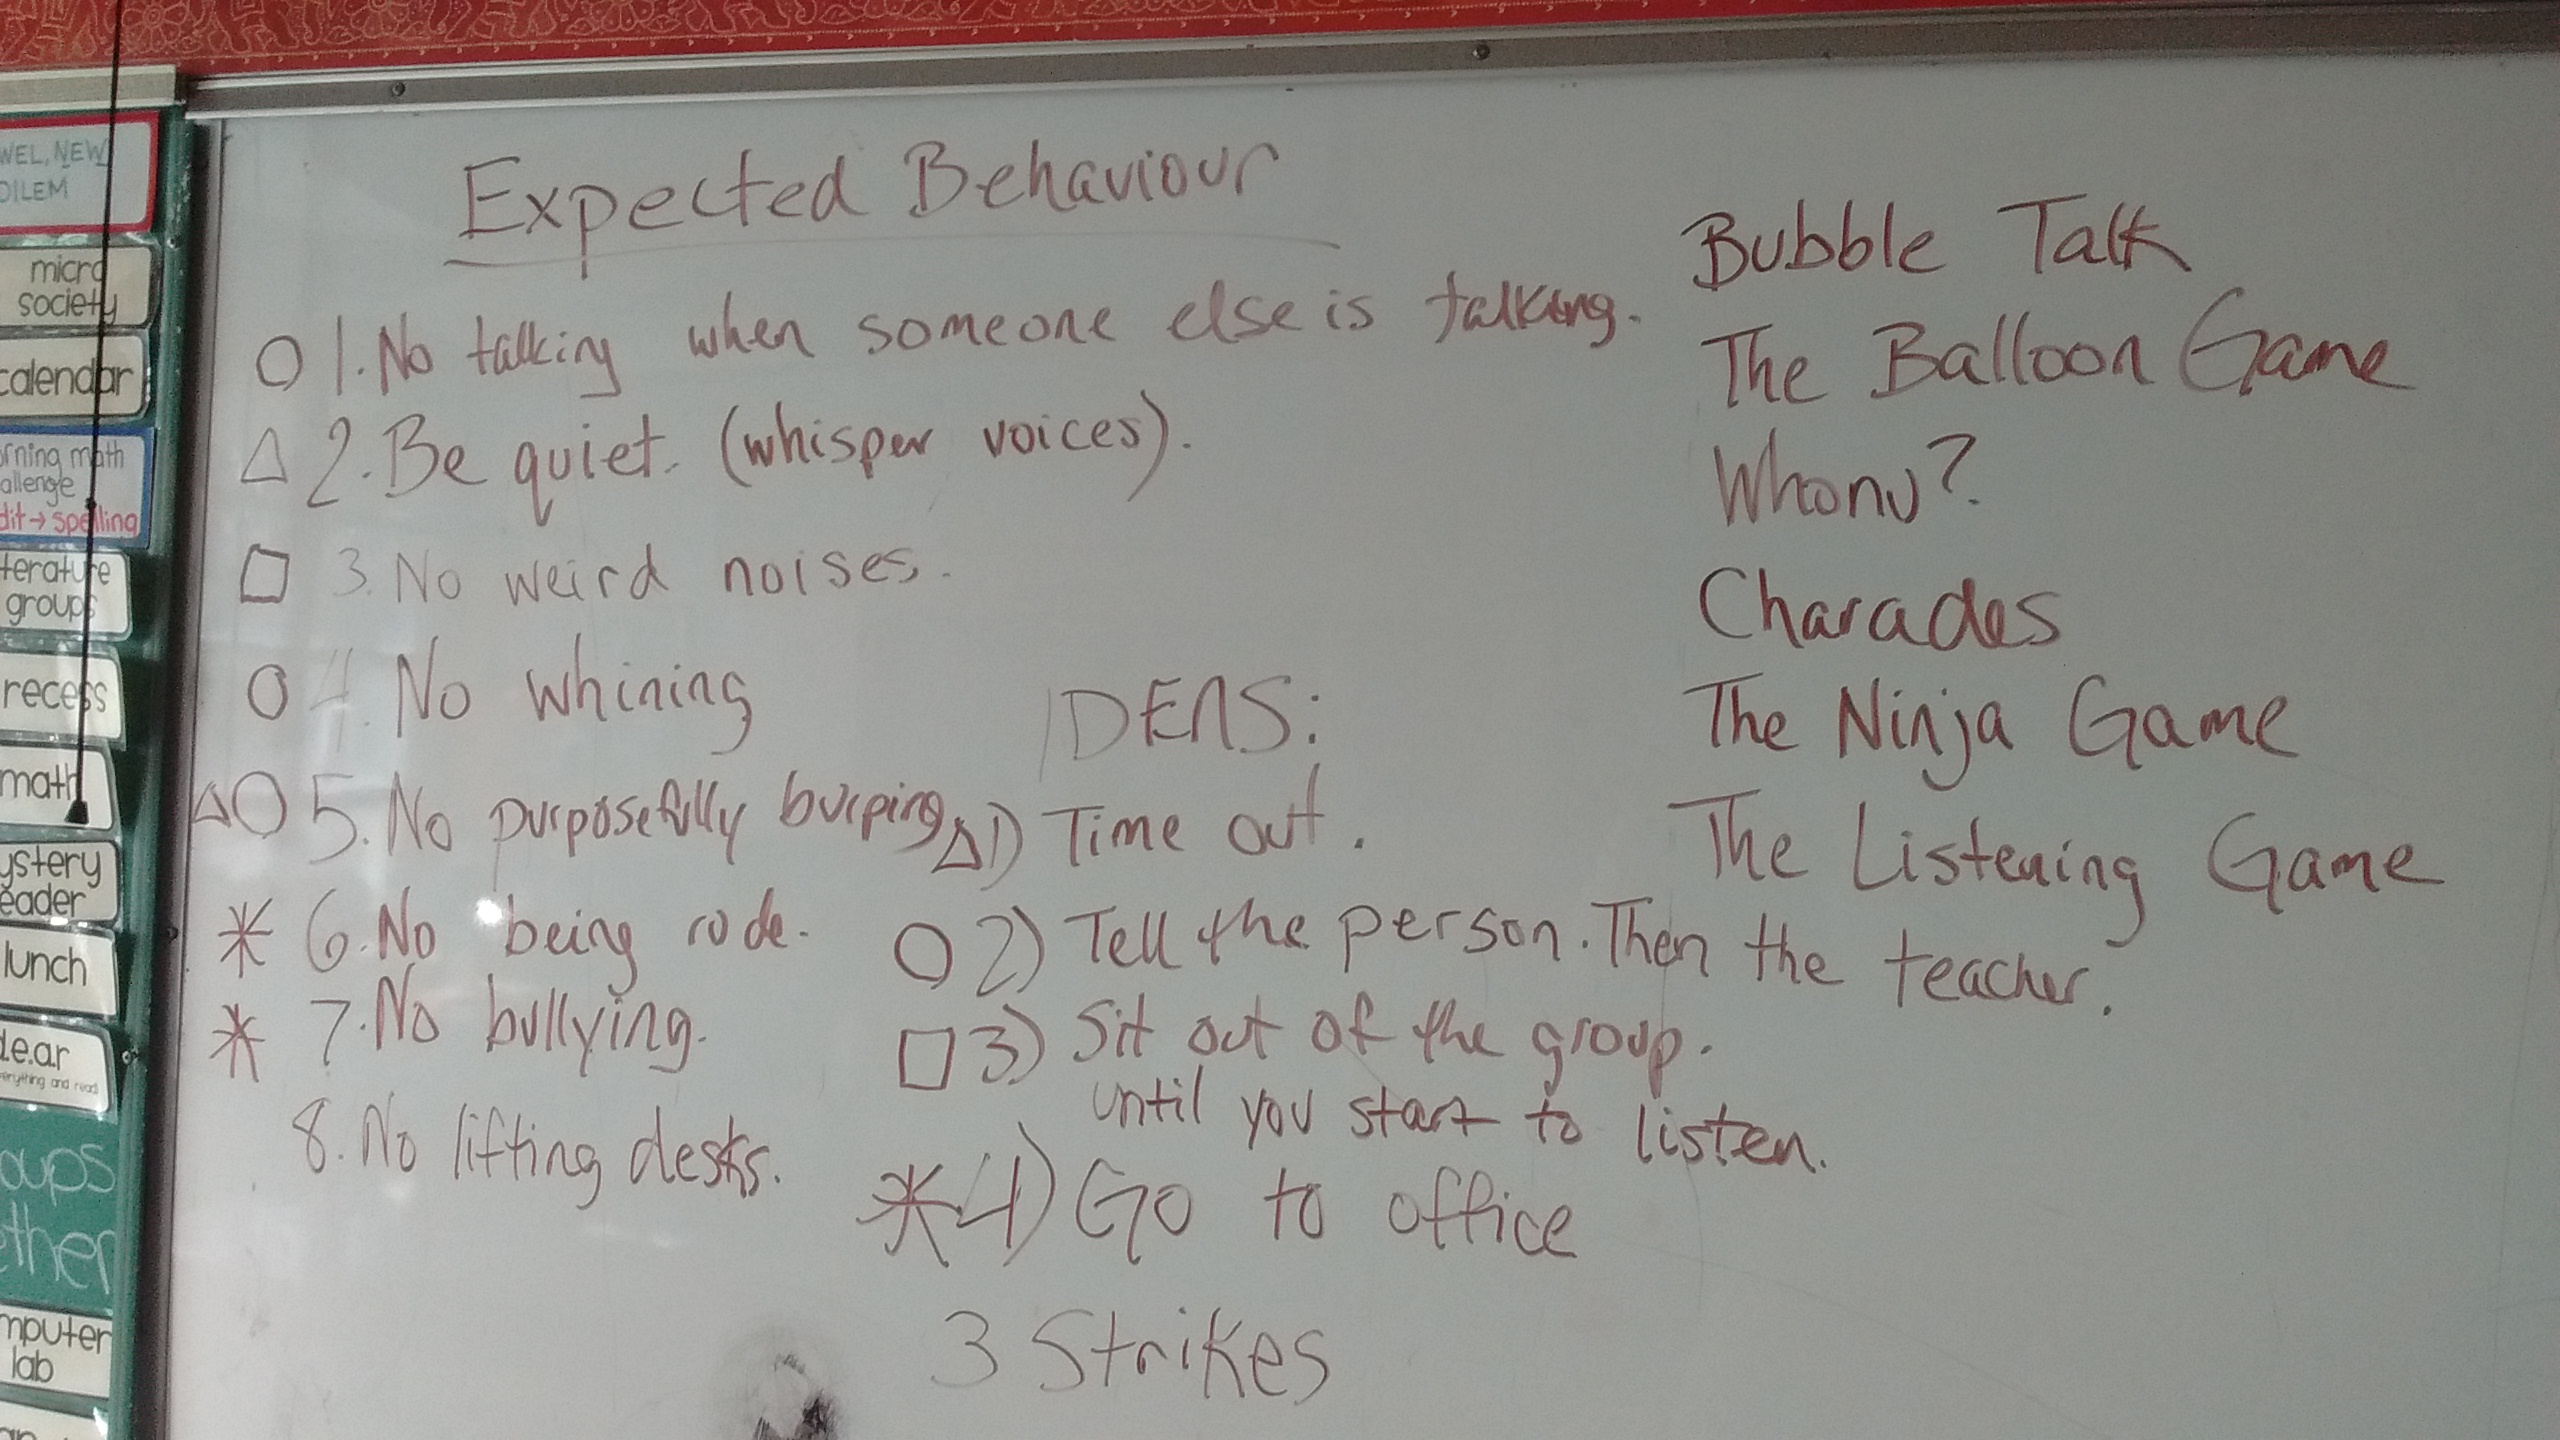 Expected Behaviour
O 1. No talking when someone else is talking.
△ 2. Be quiet. (whisper voices).
□ 3. No weird noises.
O 4. No whining
△O 5. No purposefully burping
* 6. No being rude.
* 7. No bullying.
8. No lifting desks.
IDEAS:
△ 1) Time out.
O 2) Tell the person. Then the teacher.
□ 3) Sit out of the group.
until you start to listen.
* 4) Go to office
3 Strikes
Bubble Talk
The Balloon Game
Whonu?
Charades
The Ninja Game
The Listening Game
WEL, NEW
DILEM
micro
society
calendar
rning math
allenge
dit → spelling
terature
groups
recess
math
ystery
eader
lunch
d.e.ar
erything and read
oups
ther
mputer
lab